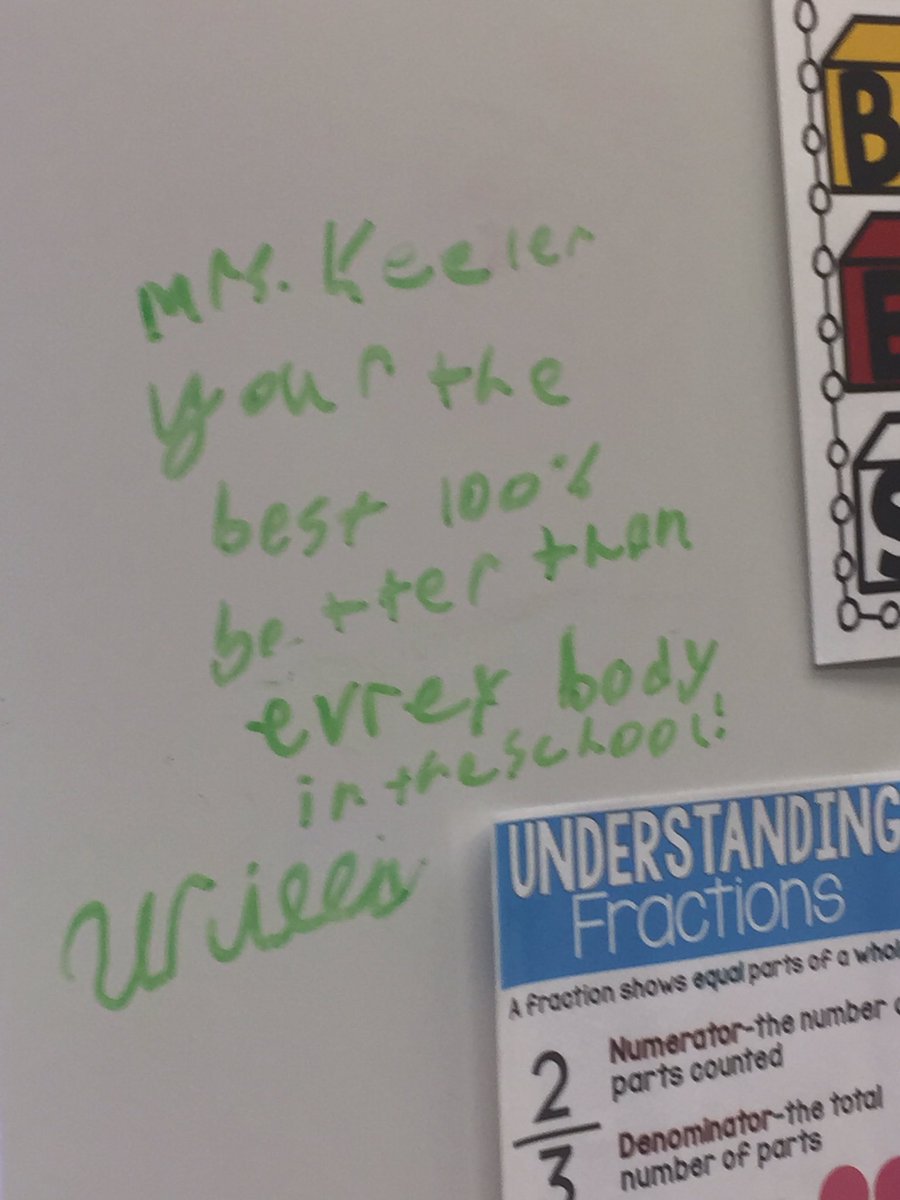 mrs. Keeler
your the
best 100%
better than
evrey body
in the school!
B
E
S
UNDERSTANDING
Fractions
A fraction shows equal parts of a whol
Numerator-the number
parts counted
2
3
Denominator-the total
number of parts